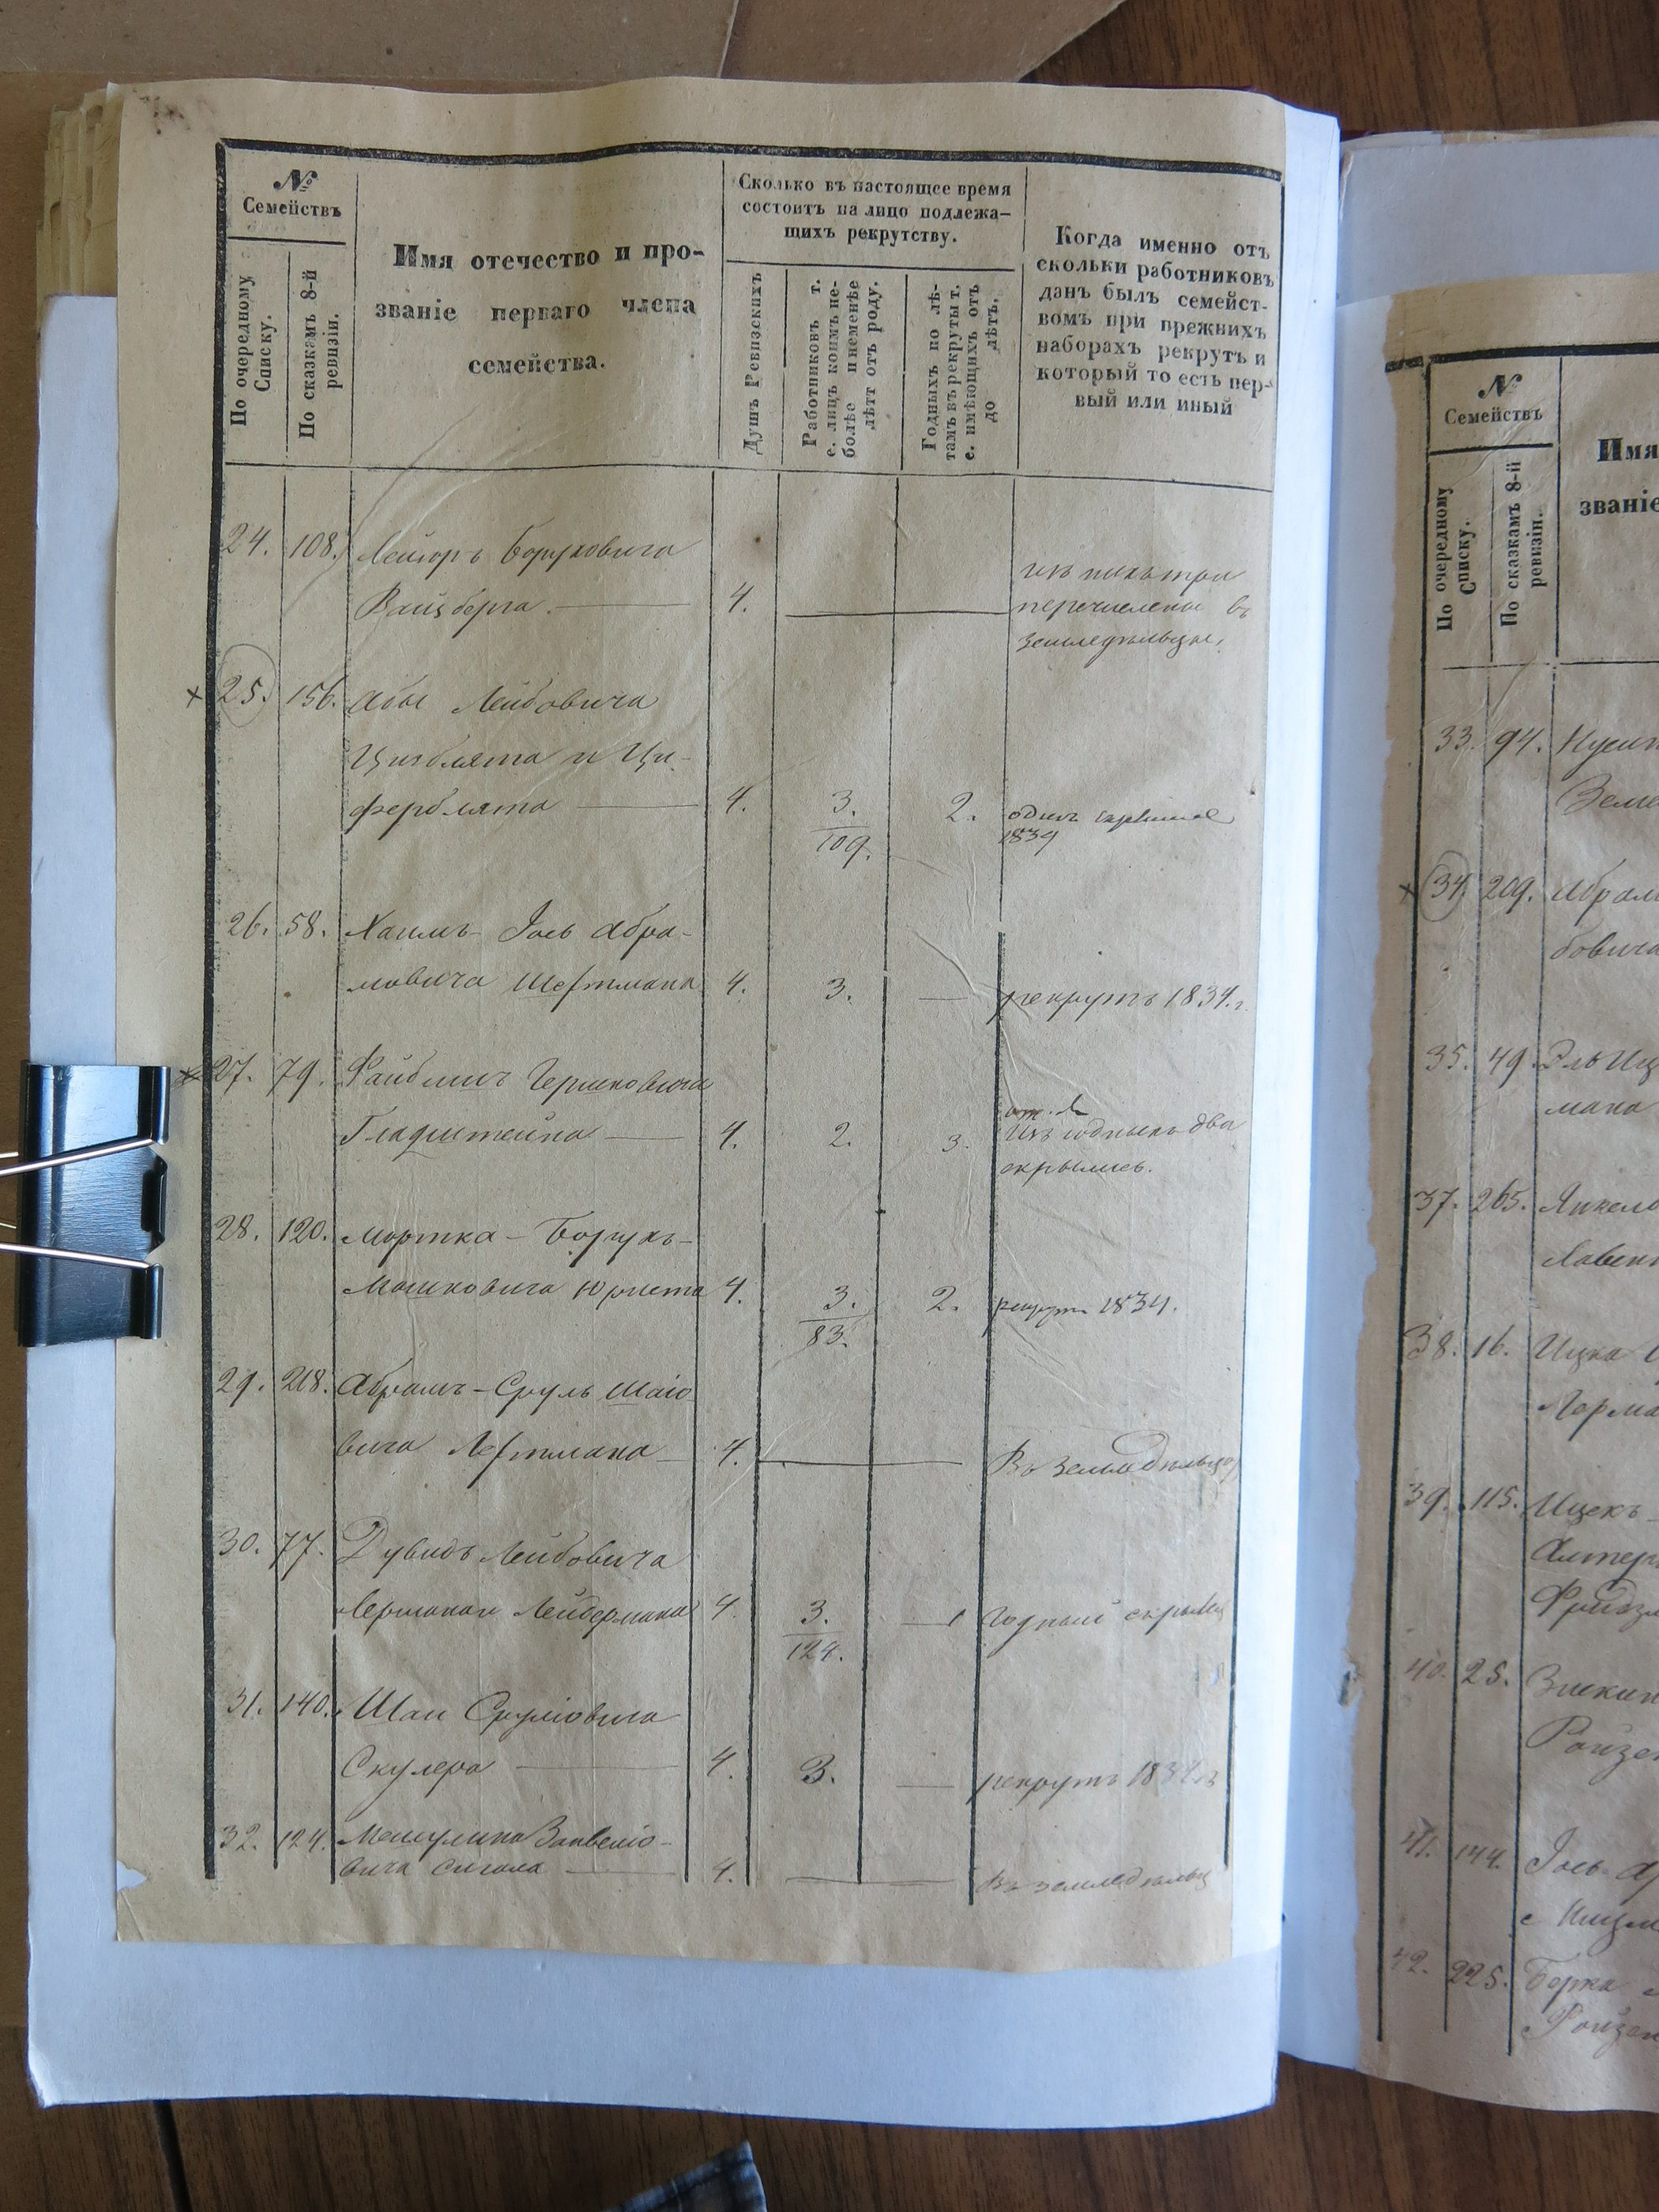 №
Семействъ
По очередному
Списку.
По сказкамъ 8-й
ревизіи.
Имя отечество и про-
званіе перваго члена
семейства.
Сколько въ настоящее время
состоитъ на лицо подлежа-
щихъ рекрутству.
Душъ Ревизскихъ
Работниковъ т.
е. лицъ коимъ не-
болѣе и неменѣе
лѣтъ отъ роду.
Годныхъ по лѣ-
тамъ въ рекруты т.
е. имѣющихъ отъ
до лѣтъ.
Когда именно отъ
сколъки работниковъ
данъ былъ семейст-
вомъ при прежнихъ
наборахъ рекрутъ и
который то есть пер-
вый или иный
24. 108. Лейзоръ Боруховича
Вайсберга. 4.
изъ нихъ три
перечислены въ
земледѣльцы.
25. 156. Абы Лейбовича
Цизблята и Ци-
ферблята 4. 3. 2. одинъ
109. 1839
26. 58. Хаимъ Іось Абра-
мовича Шортмана 4. 3. — рекрутъ 1834. г.
27. 79. Файбишъ Гершковича
Гладштейна 4. 2. 3. Изъ годныхъ два
скрылись.
28. 120. Мортка-Борухъ-
Мошковича Юриста 4. 3. 2. рекрутъ 1834.
83.
29. 218. Абрамъ-Сруль Шаіо
вича 4. Въ земледѣльцы
30. 77. Дувидъ Лейбовича
Лейдермана 4. 3. 1 Годный скрылся
124.
31. 140. Шаи Сруліовича
Скулера 4. 3. — рекрутъ 1834. г
32. 124. Мешулима
вича Сигала 4. Въ земледѣльц
№
Семействъ
По очередному
Списку.
По сказкамъ 8-й
ревизіи.
Имя
званіе
33. 94. Нусин
Земе
34 209. Абрам
бовича
35. 49. Эль Иц
мана
37. 265. Янкель
38. 16. Ицка
39. 115. Ицекъ
Алтер
40. 25.
Ройзе
41. 144. Іось
42. 225. Борка
Ройзен